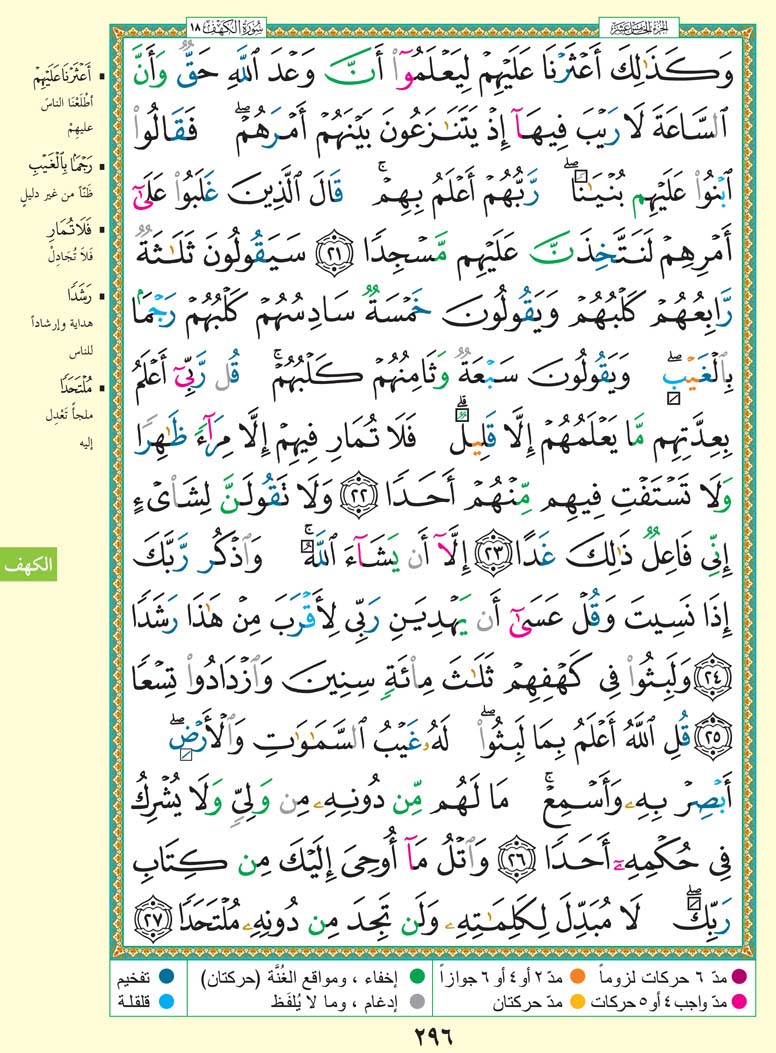 الجزء الخامس عشر
سورة الكهف ١٨
وَكَذَٰلِكَ أَعْثَرْنَا عَلَيْهِمْ لِيَعْلَمُوٓا۟ أَنَّ وَعْدَ ٱللَّهِ حَقٌّ وَأَنَّ
ٱلسَّاعَةَ لَا رَيْبَ فِيهَآ إِذْ يَتَنَٰزَعُونَ بَيْنَهُمْ أَمْرَهُمْ ۖ فَقَالُوا۟
ٱبْنُوا۟ عَلَيْهِم بُنْيَٰنًا ۖ رَّبُّهُمْ أَعْلَمُ بِهِمْ ۚ قَالَ ٱلَّذِينَ غَلَبُوا۟ عَلَىٰٓ
أَمْرِهِمْ لَنَتَّخِذَنَّ عَلَيْهِم مَّسْجِدًا ﴿٢١﴾ سَيَقُولُونَ ثَلَٰثَةٌ
رَّابِعُهُمْ كَلْبُهُمْ وَيَقُولُونَ خَمْسَةٌ سَادِسُهُمْ كَلْبُهُمْ رَجْمًۢا
بِٱلْغَيْبِ ۖ وَيَقُولُونَ سَبْعَةٌ وَثَامِنُهُمْ كَلْبُهُمْ ۚ قُل رَّبِّىٓ أَعْلَمُ
بِعِدَّتِهِم مَّا يَعْلَمُهُمْ إِلَّا قَلِيلٌ ۗ فَلَا تُمَارِ فِيهِمْ إِلَّا مِرَآءً ظَٰهِرًا
وَلَا تَسْتَفْتِ فِيهِم مِّنْهُمْ أَحَدًا ﴿٢٢﴾ وَلَا تَقُولَنَّ لِشَا۟ىْءٍ
إِنِّى فَاعِلٌ ذَٰلِكَ غَدًا ﴿٢٣﴾ إِلَّآ أَن يَشَآءَ ٱللَّهُ ۚ وَٱذْكُر رَّبَّكَ
إِذَا نَسِيتَ وَقُلْ عَسَىٰٓ أَن يَهْدِيَنِ رَبِّى لِأَقْرَبَ مِنْ هَٰذَا رَشَدًا
﴿٢٤﴾ وَلَبِثُوا۟ فِى كَهْفِهِمْ ثَلَٰثَ مِا۟ئَةٍ سِنِينَ وَٱزْدَادُوا۟ تِسْعًا
﴿٢٥﴾ قُلِ ٱللَّهُ أَعْلَمُ بِمَا لَبِثُوا۟ ۖ لَهُۥ غَيْبُ ٱلسَّمَٰوَٰتِ وَٱلْأَرْضِ ۖ
أَبْصِرْ بِهِۦ وَأَسْمِعْ ۚ مَا لَهُم مِّن دُونِهِۦ مِن وَلِىٍّ وَلَا يُشْرِكُ
فِى حُكْمِهِۦٓ أَحَدًا ﴿٢٦﴾ وَٱتْلُ مَآ أُوحِىَ إِلَيْكَ مِن كِتَابِ
رَبِّكَ ۖ لَا مُبَدِّلَ لِكَلِمَٰتِهِۦ وَلَن تَجِدَ مِن دُونِهِۦ مُلْتَحَدًا ﴿٢٧﴾
▪ أَعْثَرْنَا عَلَيْهِمْ
أطْلَعْنَا الناسَ
عليهِمْ
▪ رَجْمًۢا بِٱلْغَيْبِ
ظَنّاً من غير دليلٍ
▪ فَلَا تُمَارِ
فَلَا تُجَادِلْ
▪ رَشَدًا
هداية وإرشاداً
للناس
▪ مُلْتَحَدًا
ملجأً تَعْدِل
إليه
الكهف
مدّ ٦ حركات لزوماً مدّ ٢ أو ٤ أو ٦ جوازاً
مدّ واجب ٤ أو ٥ حركات مدّ حركتان
إخفاء ، ومواقع الغُنَّة (حركتان) تفخيم
إدغام ، وما لا يُلفَظ قلقلة
٢٩٦